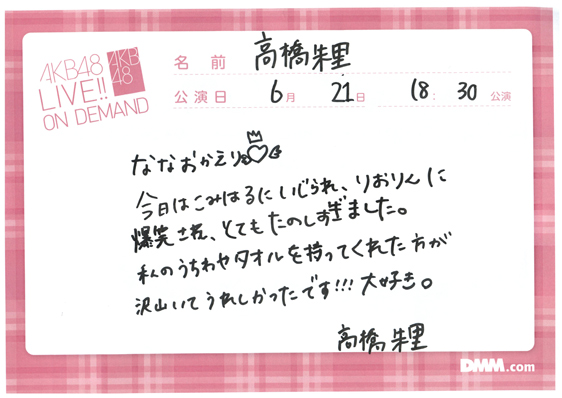 AKB48
LIVE!!
ON DEMAND
AKB
48
名前 高橋朱里
公演日 6月 21日 18:30 公演
ななおかえり
今日はこみはるにいじられ、りおりんに
爆笑され、とてもたのしすぎました。
私のうちわやタオルを持ってくれた方が
沢山いてうれしかったです!!! 大好き。
高橋朱里
DMM.com